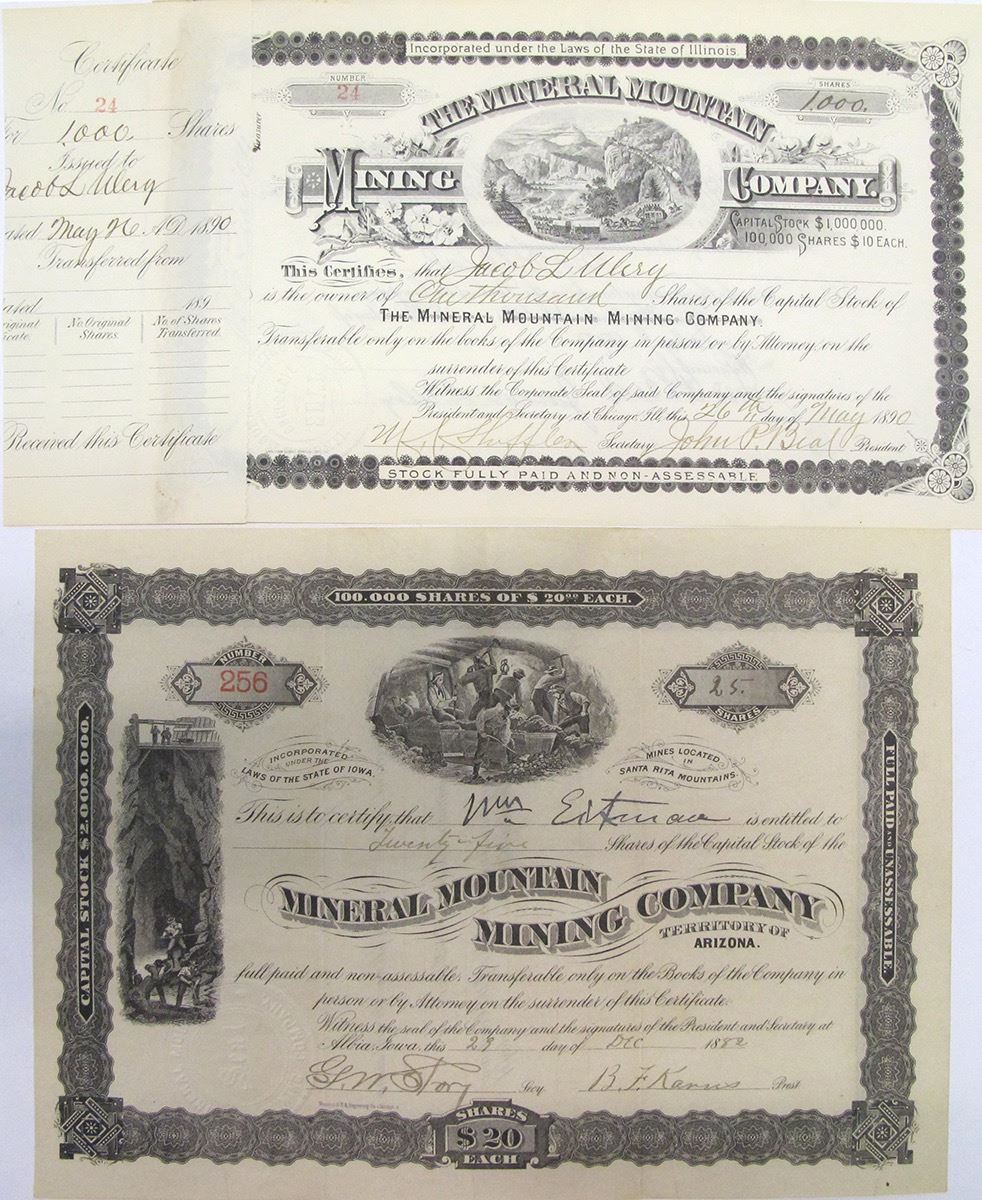 Certificate
No. 24
For 1000 Shares
Issued to
Jacob L Ulery
Dated May 26 A.D. 1890
Transferred from
Dated 189
No. Original Shares.
No. of Shares Transferred.
Received this Certificate
Incorporated under the Laws of the State of Illinois.
NUMBER
24
SHARES
1000.
THE MINERAL MOUNTAIN
MINING COMPANY.
CAPITAL STOCK $1,000,000.
100,000 SHARES $10 EACH.
This Certifies, that Jacob L Ulery
is the owner of One thousand Shares of the Capital Stock of
THE MINERAL MOUNTAIN MINING COMPANY.
Transferable only on the books of the Company in person or by Attorney, on the
surrender of this Certificate
Witness the Corporate Seal of said Company and the signatures of the
President and Secretary at Chicago, Ill, this 26th day of May 1890
Secretary John P. Beal President
STOCK FULLY PAID AND NON-ASSESSABLE
100.000 SHARES OF $ 20.00 EACH.
NUMBER
256
25.
SHARES
INCORPORATED
UNDER THE
LAWS OF THE STATE OF IOWA.
MINES LOCATED
IN
SANTA RITA MOUNTAINS.
CAPITAL STOCK $2.000.000.
FULL PAID AND UNASSESSABLE.
This is to certify, that Wm is entitled to
Twenty-five Shares of the Capital Stock of the
MINERAL MOUNTAIN
MINING COMPANY
TERRITORY OF
ARIZONA.
full paid and non-assessable. Transferable only on the Books of the Company in
person or by Attorney on the surrender of this Certificate.
Witness the seal of the Company and the signatures of the President and Secretary at
Albia, Iowa, this 29 day of Dec 1882
G. W. Story Secy B. F. Prest
SHARES
$ 20
EACH